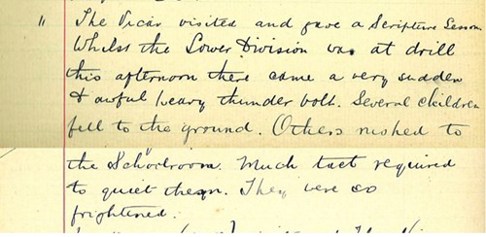 " The Vicar visited and gave a Scripture Lesson
Whilst the Lower Division was at drill
this afternoon there came a very sudden
& awful heavy thunder bolt. Several children
fell to the ground. Others rushed to
the Schoolroom. Much tact required
to quiet them. They were so
frightened.